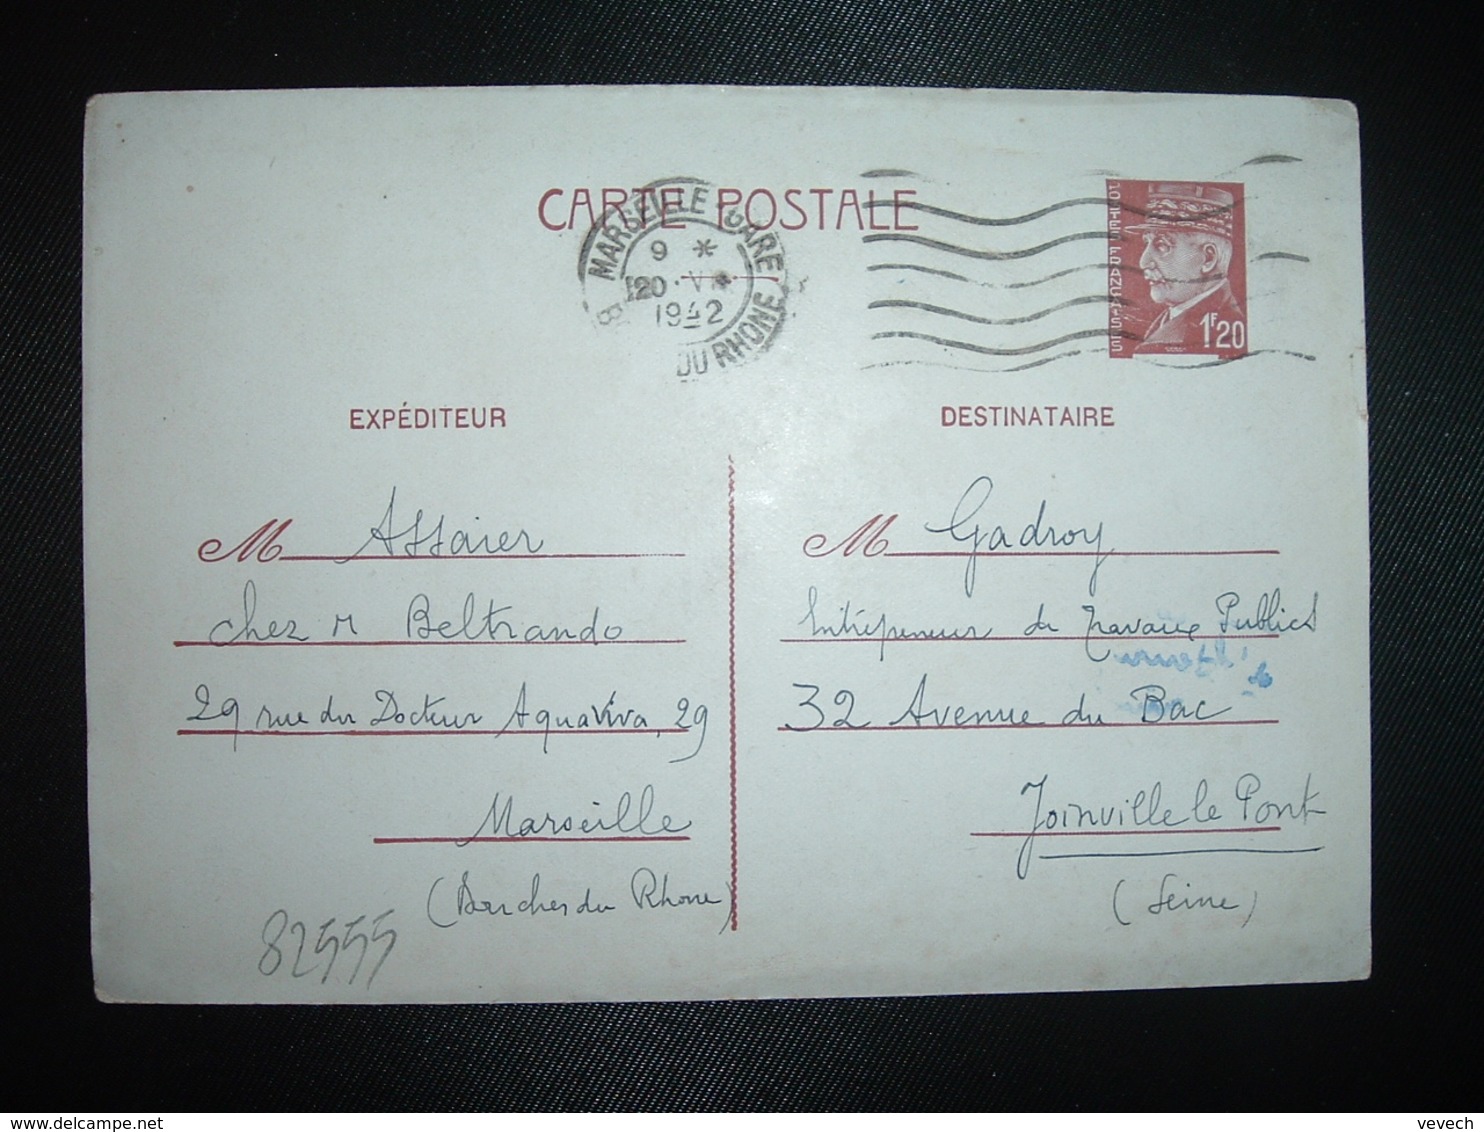 CARTE POSTALE
MARSEILLE GARE
9 *
20 · V *
1942
B DU RHONE
POSTES FRANÇAISES
1F20
EXPÉDITEUR
DESTINATAIRE
M Assaier
chez M Beltrando
29 rue du Docteur Aquaviva, 29
Marseille
(Bouches du Rhone)
82555
M Gadroy
Entrepreneur de Travaux Publics
32 Avenue du Bac
Joinville le Pont
(Seine)
delcampe.net
vevech